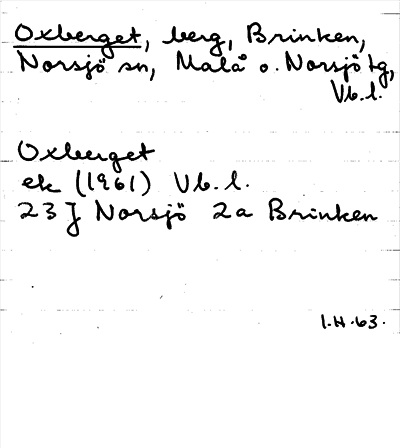 Oxberget, berg, Brinken,
Norsjö sn, Malå o. Norsjö tg,
Vb.l.
Oxberget
ek (1961) Vb.l.
23J Norsjö 2a Brinken
I.H.63.